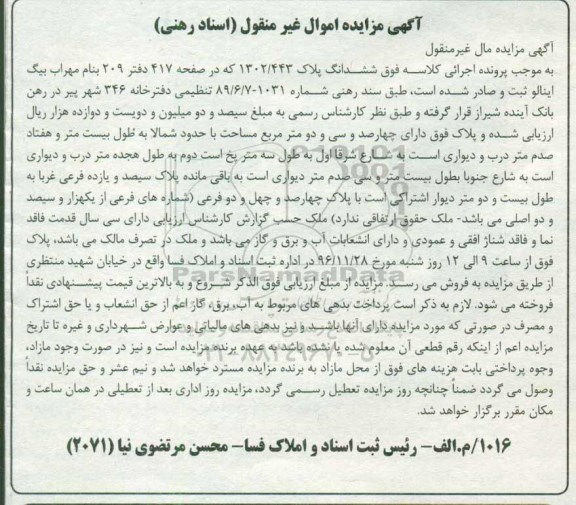 آگهی مزایده اموال غیر منقول (اسناد رهنی)
آگهی مزایده مال غیرمنقول
به موجب پرونده اجرائی کلاسه فوق ششدانگ پلاک ۱۳۰۲/۴۴۳ که در صفحه ۴۱۷ دفتر ۲۰۹ بنام مهراب بیگ
اینالو ثبت و صادر شده است، طبق سند رهنی شماره ۱۰۳۱-۸۹/۶/۷ تنظیمی دفترخانه ۳۴۶ شهر پیر در رهن
بانک آینده شیراز قرار گرفته و طبق نظر کارشناس رسمی به مبلغ سیصد و دو میلیون و دویست و دوازده هزار ریال
ارزیابی شده و پلاک فوق دارای چهارصد و سی و دو متر مربع مساحت با حدود شمالا به طول بیست متر و هفتاد
صدم متر درب و دیواری است به شارع شرقا اول به طول سه متر پخ است دوم به طول هجده متر درب و دیواری
است به شارع جنوبا بطول بیست متر و سی صدم متر دیواری است به باقی مانده پلاک سیصد و یازده فرعی غربا به
طول بیست و دو متر دیوار اشتراکی است با پلاک چهارصد و چهل و دو فرعی (شماره های فرعی از یکهزار و سیصد
و دو اصلی می باشد- ملک حقوق ارتفاقی ندارد) ملک حسب گزارش کارشناس ارزیابی دارای سی سال قدمت فاقد
نما و فاقد شناژ افقی و عمودی و دارای انشعابات آب و برق و گاز می باشد و ملک در تصرف مالک می باشد، پلاک
فوق از ساعت ۹ الی ۱۲ روز شنبه مورخ ۹۶/۱۱/۲۸ در اداره ثبت اسناد و املاک فسا واقع در خیابان شهید منتظری
از طریق مزایده به فروش می رسد. مزایده از مبلغ ارزیابی فوق الذکر شروع و به بالاترین قیمت پیشنهادی نقداً
فروخته می شود. لازم به ذکر است پرداخت بدهی های مربوط به آب، برق، گاز اعم از حق انشعاب و یا حق اشتراک
و مصرف در صورتی که مورد مزایده دارای آنها باشد و نیز بدهی های مالیاتی و عوارض شهرداری و غیره تا تاریخ
مزایده اعم از اینکه رقم قطعی آن معلوم شده یا نشده باشد به عهده برنده مزایده است و نیز در صورت وجود مازاد،
وجوه پرداختی بابت هزینه های فوق از محل مازاد به برنده مزایده مسترد خواهد شد و نیم عشر و حق مزایده نقداً
وصول می گردد ضمناً چنانچه روز مزایده تعطیل رسمی گردد، مزایده روز اداری بعد از تعطیلی در همان ساعت و
مکان مقرر برگزار خواهد شد.
۱۰۱۶/م.الف- رئیس ثبت اسناد و املاک فسا- محسن مرتضوی نیا (۲۰۷۱)
ParsNamadData